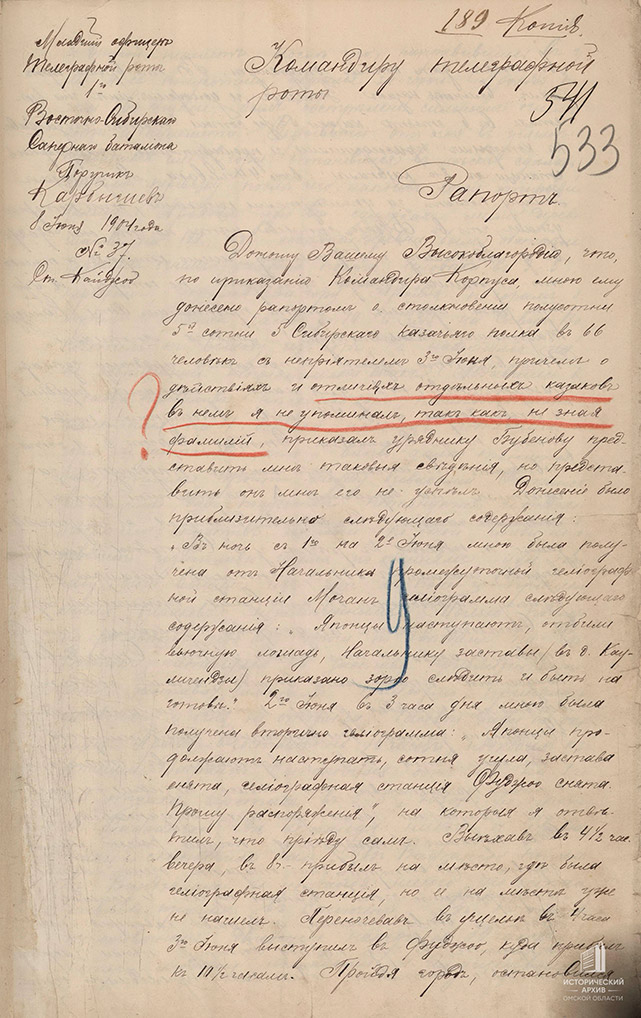 189 Копія.
Младшій офицеръ
Телеграфной роты
1го
Восточно-Сибирскаго
Сапернаго баталіона
Поручикъ
Карбышевъ
8 Іюня 1904 года
№ 37.
Ст. Кайджоо
Командиру телеграфной
роты
541
533
Рапортъ.
Доношу Вашему Высокоблагородію, что,
по приказанію Командира Корпуса, мною ему
донесено рапортомъ о столкновеніи полусотни
5й сотни 5 Сибирскаго казачьяго полка въ 66
человѣкъ съ непріятелемъ 3го Іюня, причемъ о
дѣйствіяхъ и отличіяхъ отдѣльныхъ казаковъ
въ немъ я не упоминалъ, такъ какъ, не зная
?
фамилій, приказалъ уряднику Бубенову пред-
ставить мнѣ таковыя свѣдѣнія, но предста-
вить онъ мнѣ его не успѣлъ. Донесеніе было
приблизительно слѣдующаго содержанія:
„Въ ночь съ 1го на 2е Іюня мною была полу-
чена отъ Начальника промежуточной геліограф-
ной станціи Мочанъ геліограмма слѣдующаго
содержанія: „Японцы наступаютъ, отбили
вьючную лошадь, Начальнику заставы (въ д. Кау-
) приказано зорко слѣдить и быть на
готовѣ." 2го Іюня въ 3 часа дня мною была
получена вторично геліограмма: „Японцы про-
должаютъ наступать, сотня ушла, застава
снята, геліографная станція Фучжоо снята.
Прошу распоряженія", на которыя я отвѣ-
тилъ, что пріѣду самъ. Выѣхавъ въ 4½ час.
вечера, въ 8 - прибылъ на мѣсто, гдѣ была
геліографная станція, но ее на мѣстѣ уже
не нашелъ. Переночевавъ въ ущельи въ 4 часа
3го Іюня выступилъ въ Фучжоо, куда прибылъ
къ 10½ часамъ. Пройдя городъ, остановился
ИСТОРИЧЕСКИЙ
АРХИВ
ОМСКОЙ ОБЛАСТИ